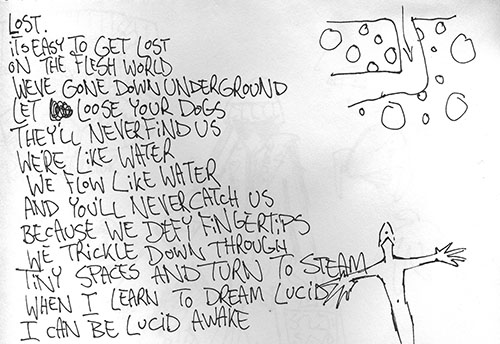 LOST.
ITS EASY TO GET LOST
ON THE FLESH WORLD
WEVE GONE DOWN UNDERGROUND
LET LOOSE YOUR DOGS
THEY'LL NEVER FIND US
WE'RE LIKE WATER
WE FLOW LIKE WATER
AND YOU'LL NEVER CATCH US
BECAUSE WE DEFY FINGERTIPS
WE TRICKLE DOWN THROUGH
TINY SPACES AND TURN TO STEAM
WHEN I LEARN TO DREAM LUCID
I CAN BE LUCID AWAKE